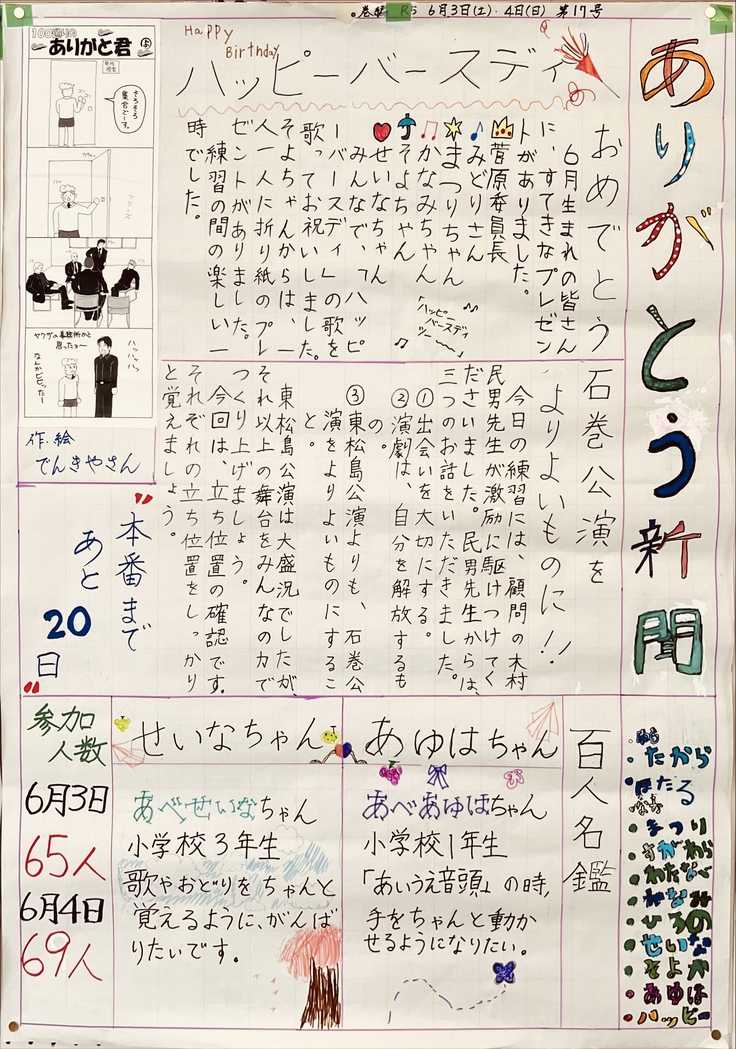 巻 R5 6月3日(土)・4日(日) 第17号
ありがとう新聞
Happy
Birthday
ハッピーバースディ
おめでとう
6月生まれの皆さん
に、すてきなプレゼン
トがありました。
菅原委員長
みどりさん
まつりちゃん
かなみちゃん
そよちゃん
せいなちゃん
みんなで、「ハッピ
ーバースディ」の歌を
歌ってお祝いしました。
そよちゃんからは、一
人一人に折り紙のプレ
ゼントがありました。
練習の間の楽しい一
時でした。
「ハッピー
バースディ
ツー〜」
石巻公演を
よりよいものに!!
今日の練習には、顧問の木村
民男先生が激励に駆けつけてく
ださいました。民男先生からは、
三つのお話をいただきました。
①出会いを大切にする。
②演劇は、自分を解放するも
の。
③東松島公演よりも、石巻公
演をよりよいものにするこ
と。
東松島公演は大盛況でしたが、
それ以上の舞台をみんなの力で
つくり上げましょう。
今回は、立ち位置の確認です。
それぞれの立ち位置をしっかり
と覚えましょう。
ありがと君
そろそろ
集合でーす。
ヤクザの事務所かと
思ったョ〜
なんかビビッたー
ハッハッハッ
作・絵
でんきやさん
"本番まで
あと
20
日"
百人名鑑
あゆはちゃん
あべあゆはちゃん
小学校1年生
「あいうえ音頭」の時,
手をちゃんと動か
せるようになりたい。
せいなちゃん
あべせいなちゃん
小学校3年生
歌やおどりをちゃんと
覚えるように、がんば
りたいです。
参加
人数
6月3日
65人
6月4日
69人
・たから
・ほたる
・まつり
・すがわら
・わたなべ
・かなみ
・ひろの
・せいな
・そよか
・あゆは
・ハッピー